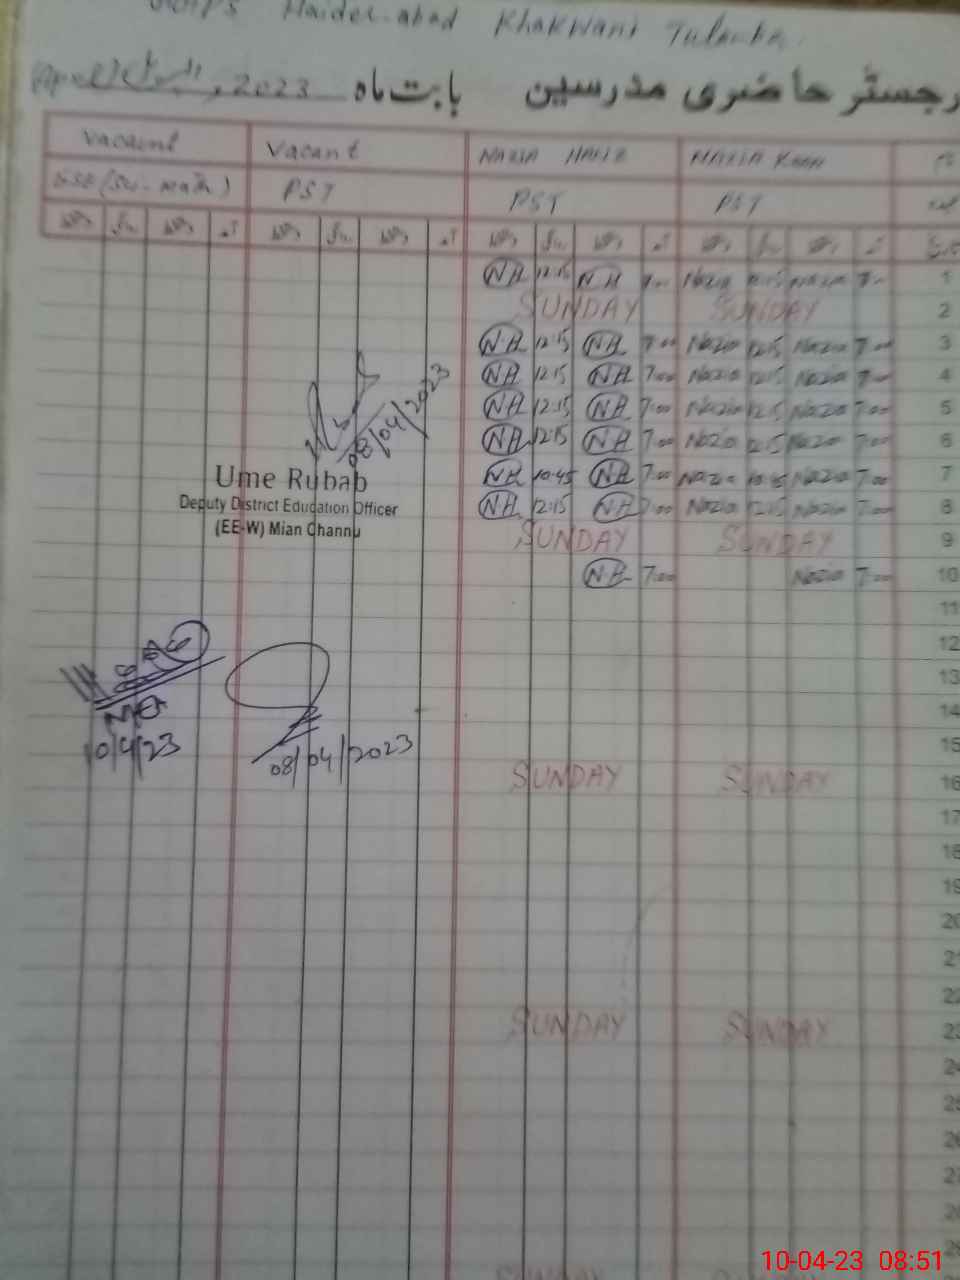 Haider abad Khakwani Tulamba
رجسٹر حاضری مدرسین بابت ماہ اپریل (April) 2023
Vacant Vacant NAZIA HAFIZ NAZIA KHAN نام
SSE (Sci-math) PST PST PST عہدہ
دستخط دستخط آمد دستخط دستخط آمد دستخط دستخط آمد دستخط دستخط آمد تاریخ
NH 12:15 NH 7:00 Nazia 12:15 Nazia 7:00 1
SUNDAY SUNDAY 2
NH 12:15 NH 7:00 Nazia 12:15 Nazia 7:00 3
NH 12:15 NH 7:00 Nazia 12:15 Nazia 7:00 4
NH 12:15 NH 7:00 Nazia 12:15 Nazia 7:00 5
NH 12:15 NH 7:00 Nazia 12:15 Nazia 7:00 6
NH 10:45 NH 7:00 Nazia 10:45 Nazia 7:00 7
NH 12:15 NH 7:00 Nazia 12:15 Nazia 7:00 8
SUNDAY SUNDAY 9
NH 7:00 Nazia 7:00 10
08/04/2023
Ume Rubab
Deputy District Education Officer
(EE-W) Mian Channu
11
12
13
14
15
10/4/23
08/04/2023
SUNDAY SUNDAY 16
17
18
19
20
21
22
SUNDAY SUNDAY 23
24
25
26
27
28
29
SUNDAY
10-04-23 08:51